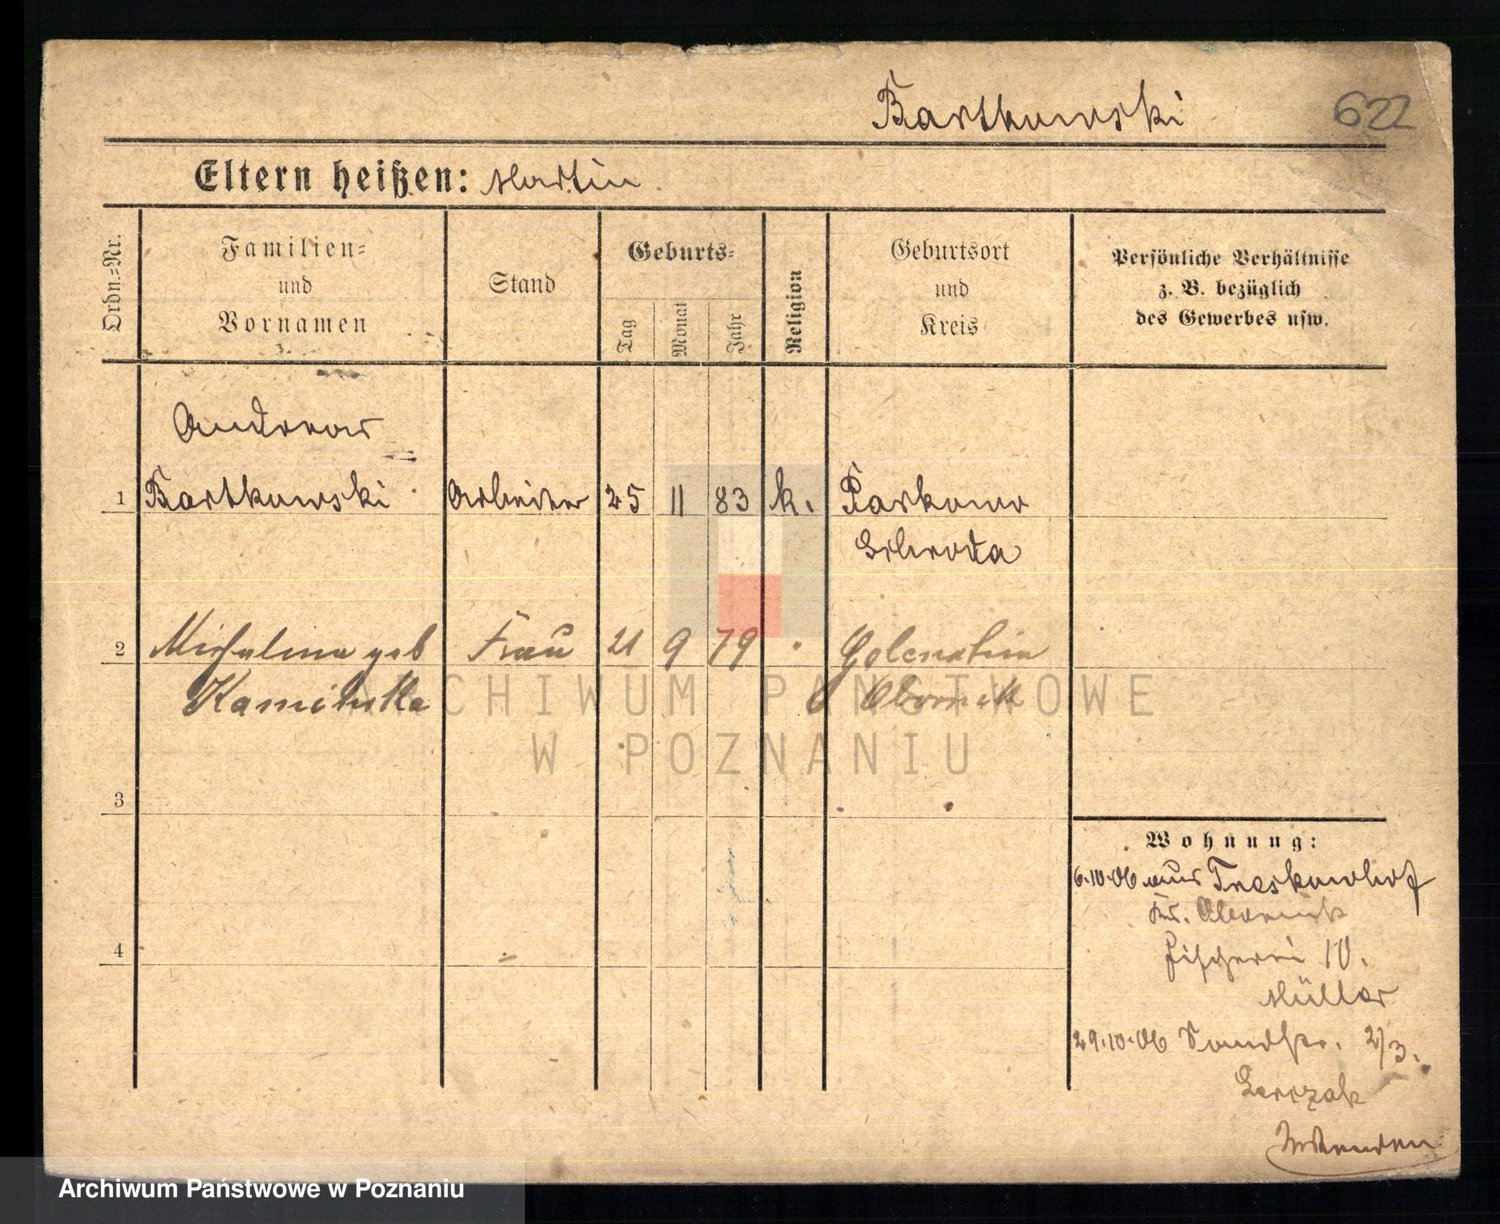 Bartkowski 622
Eltern heißen: Martin
Ordn.-Nr.
Familien-
und
Vornamen
Stand
Geburts-
Tag
Monat
Jahr
Religion
Geburtsort
und
Kreis
Persönliche Verhältnisse
z. B. bezüglich
des Gewerbes usw.
Andreas
1 Bartkowski Arbeiter 25 11 83 k. Parkowo
Schroda
2 Michalina geb Frau 21 9 79 " 
Kaminska Obornik
ARCHIWUM PAŃSTWOWE
W POZNANIU
3
Wohnung:
6.10.06 aus Treskowhof
Kr. Obornik
4
Fischerei 10.
Müller
29.10.06 Sandstr. 2/3.
Archiwum Państwowe w Poznaniu